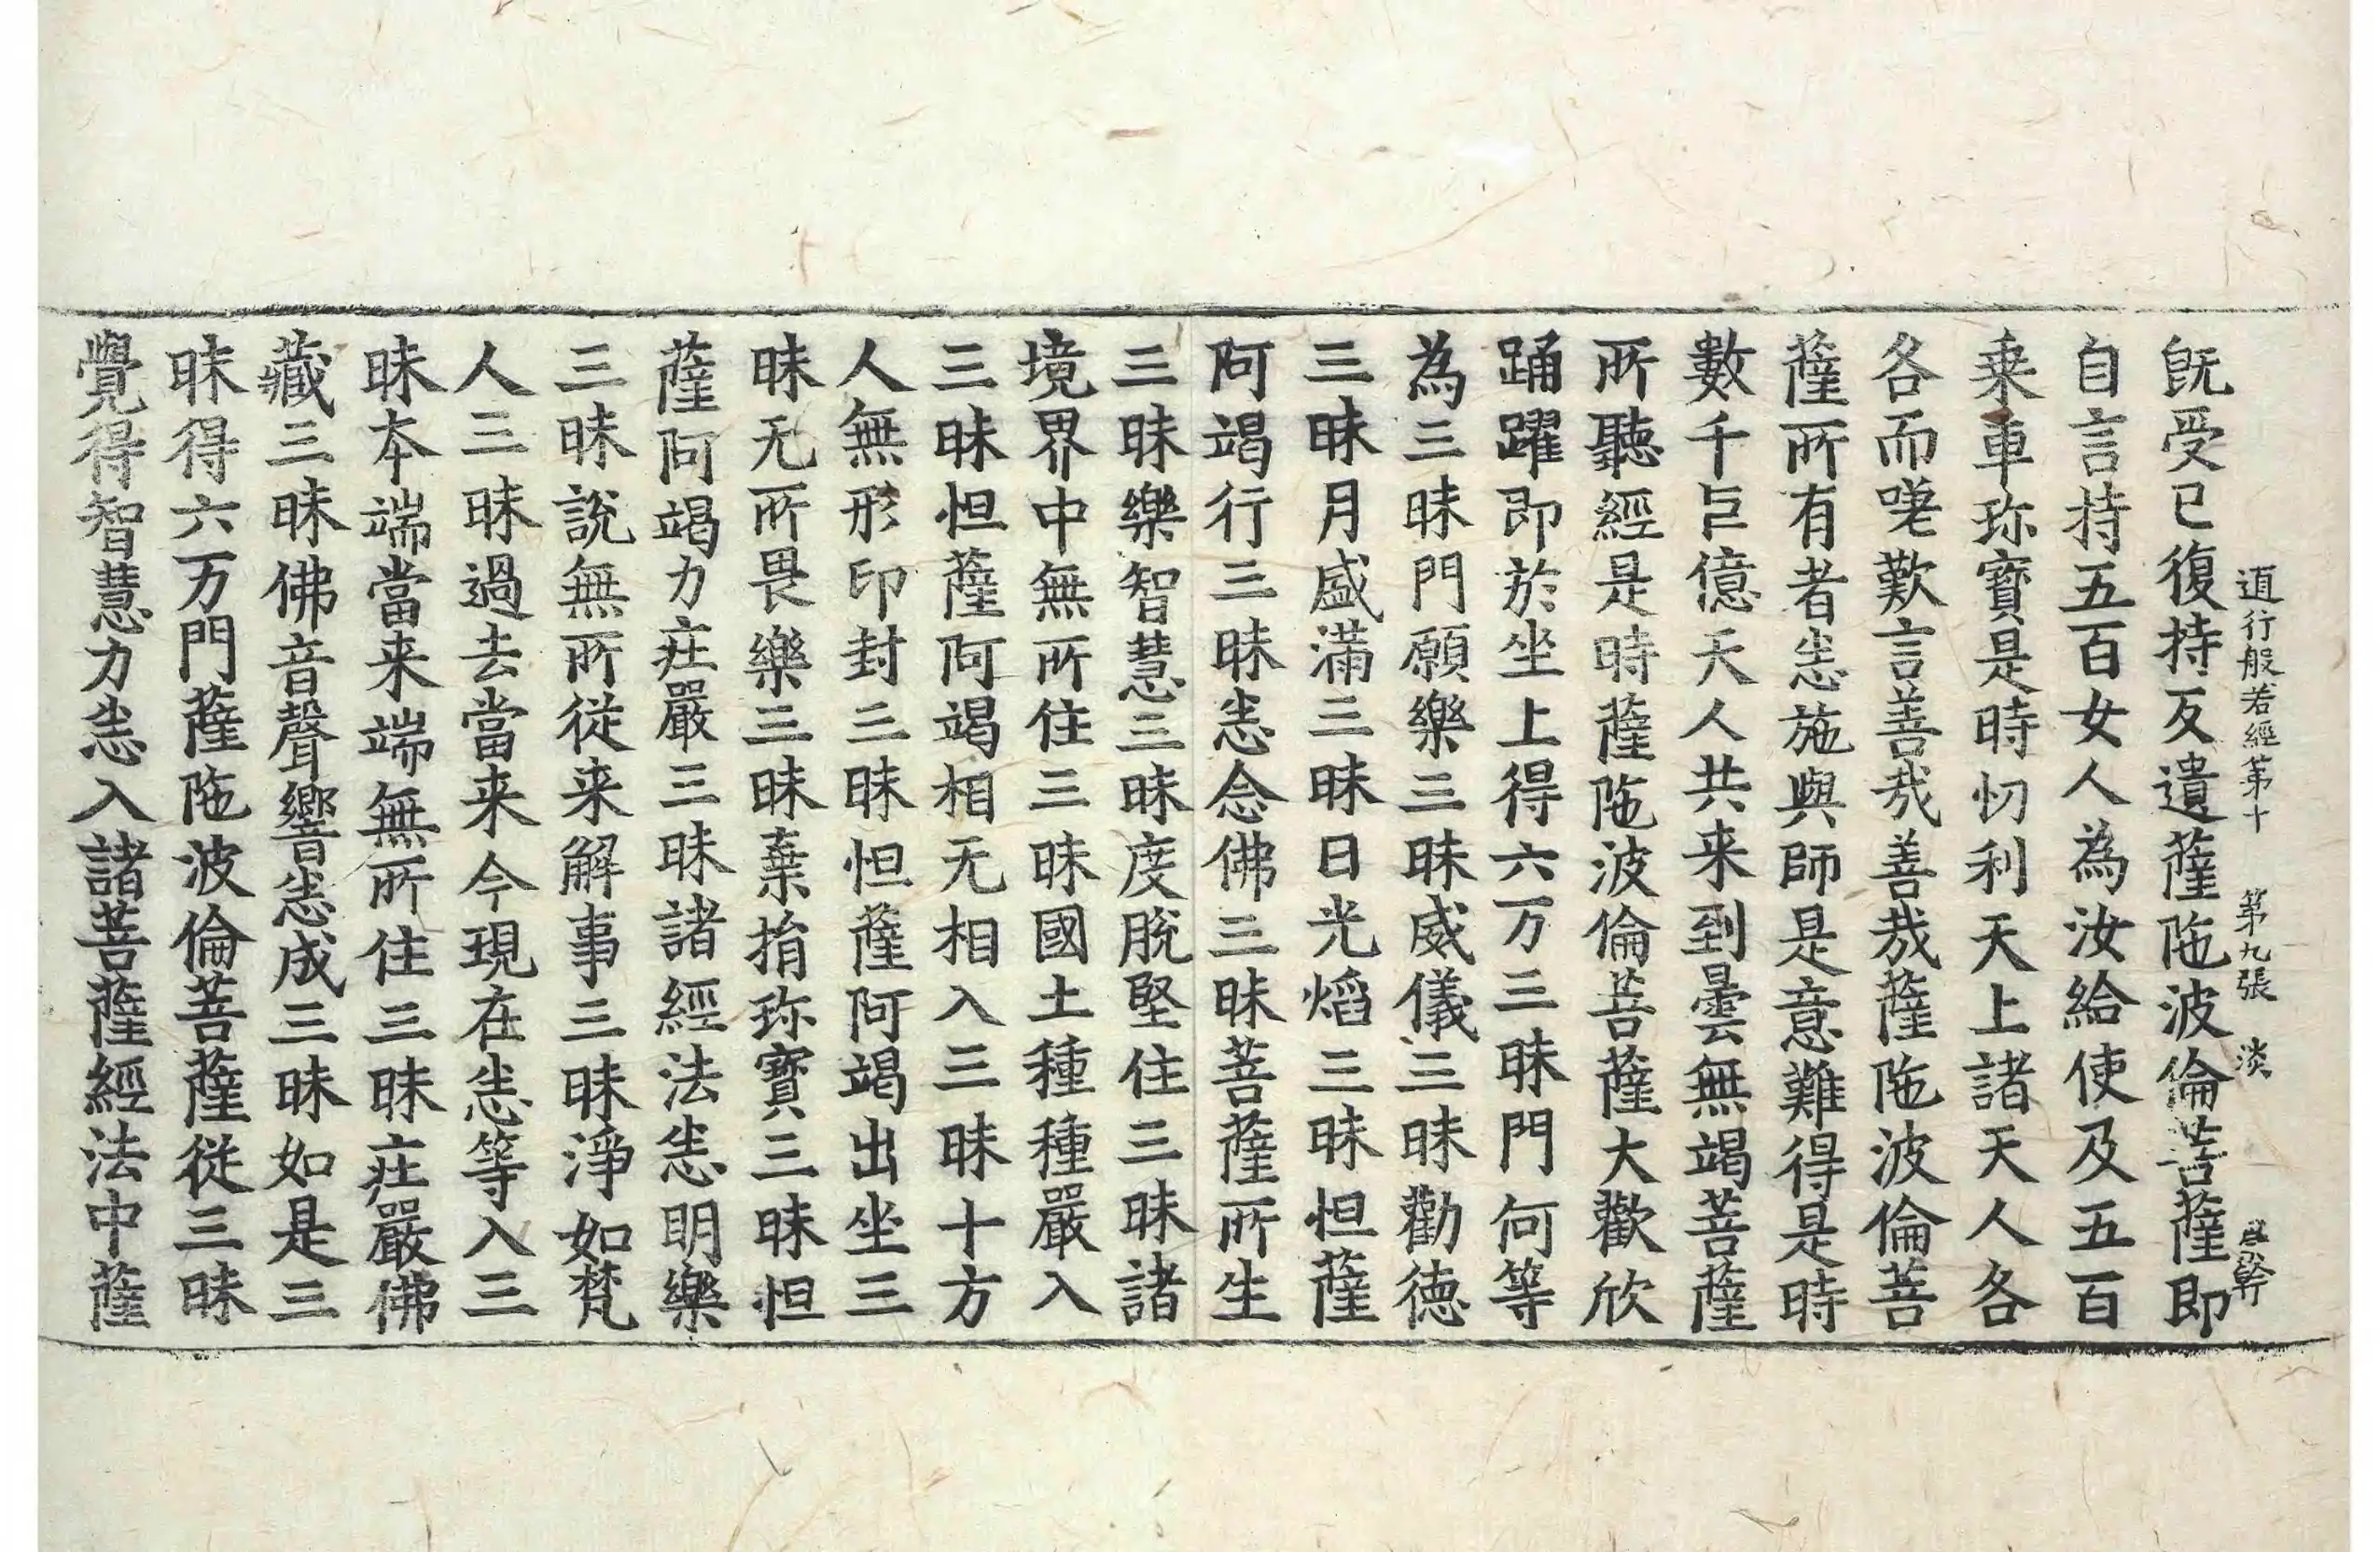 道行般若經第十 第九張 淡
既受已復持反遺薩陁波倫菩薩即
自言持五百女人為汝給使及五百
乗車珎寳是時忉利天上諸天人各
各而嗟歎言善㢤善㢤薩陁波倫菩
薩所有者㤅施與師是意難得是時
數千巨億天人共来到曇無竭菩薩
所聽經是時薩陁波倫菩薩大歡欣
踊躍即於坐上得六万三昧門何等
為三昧門願樂三昧威儀三昧勸德
三昧月盛滿三昧日光焰三昧怛薩
阿竭行三昧悉念佛三昧菩薩所生
三昧樂智慧三昧度脫堅住三昧諸
境界中無所住三昧國土種種嚴入
三昧怛薩阿竭相无相入三昧十方
人無形印封三昧怛薩阿竭出坐三
昧无所畏樂三昧棄捐珎寳三昧怛
薩阿竭力庄嚴三昧諸經法悉明樂
三昧說無所從来解事三昧淨如梵
人三昧過去當来今現在悉等入三
昧本端當来端無所住三昧庄嚴佛
藏三昧佛音聲響悉成三昧如是三
昧得六万門薩陁波倫菩薩從三昧
覺得智慧力悉入諸菩薩經法中薩